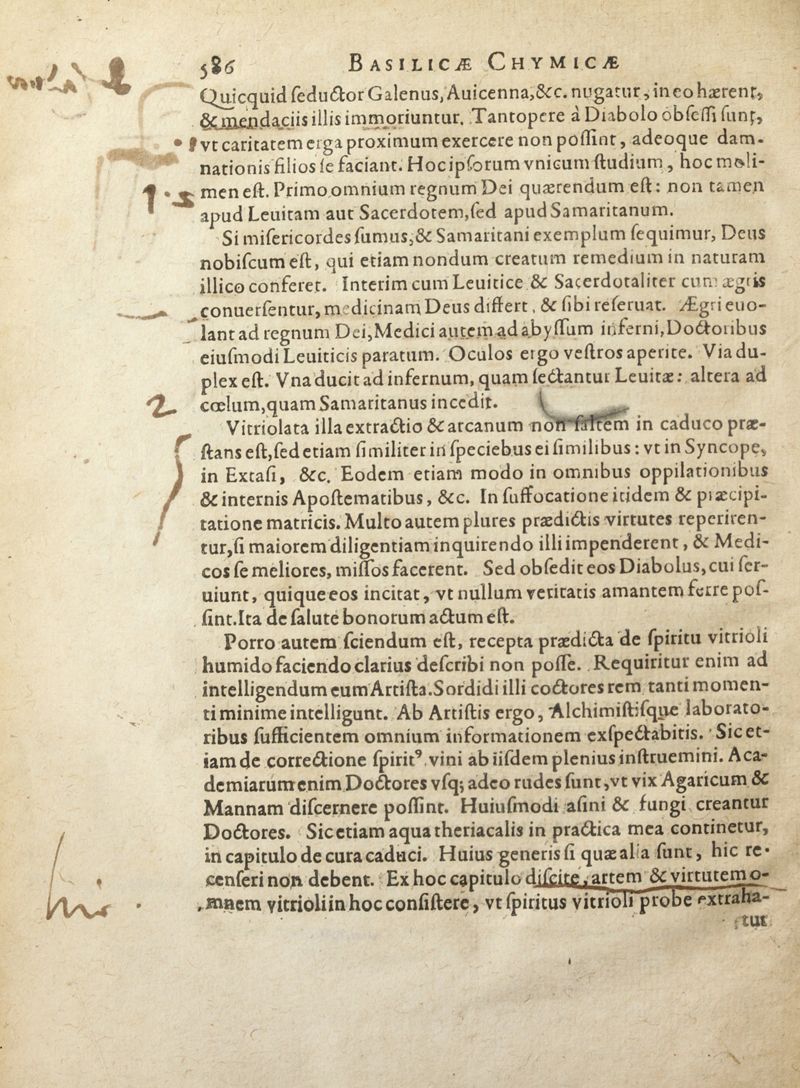 586 BASILICÆ CHYMICÆ
Quicquid ſeductor Galenus, Auicenna,&c. nugatur, in eo hærent,
& mendaciis illis immoriuntur. Tantopere à Diabolo obſeſſi ſunt,
vt caritatem erga proximum exercere non poſſint, adeoque dam-
nationis filios ſe faciant. Hoc ipſorum vnicum ſtudium, hoc moli-
men eſt. Primo omnium regnum Dei quærendum eſt: non tamen
apud Leuitam aut Sacerdotem,ſed apud Samaritanum.
Si miſericordes ſumus,& Samaritani exemplum ſequimur, Deus
nobiſcum eſt, qui etiam nondum creatum remedium in naturam
illico conferet. Interim cum Leuitice & Sacerdotaliter cum ægris
conuerſentur, medicinam Deus differt, & ſibi reſeruat. Ægri euo-
lant ad regnum Dei,Medici autem ad abyſſum inferni,Doctoribus
eiuſmodi Leuiticis paratum. Oculos ergo veſtros aperite. Via du-
plex eſt. Vna ducit ad infernum, quam ſectantur Leuitæ: altera ad
cœlum,quam Samaritanus incedit.
Vitriolata illa extractio & arcanum non ſaltem in caduco præ-
ſtans eſt,ſed etiam ſimiliter in ſpeciebus ei ſimilibus: vt in Syncope,
in Extaſi, &c. Eodem etiam modo in omnibus oppilationibus
& internis Apoſtematibus, &c. In ſuffocatione itidem & præcipi-
tatione matricis. Multo autem plures prædictis virtutes reperiren-
tur,ſi maiorem diligentiam inquirendo illi impenderent, & Medi-
cos ſe meliores, miſſos facerent. Sed obſedit eos Diabolus, cui ſer-
uiunt, quique eos incitat, vt nullum veritatis amantem ferre poſ-
ſint.Ita de ſalute bonorum actum eſt.
Porro autem ſciendum eſt, recepta prædicta de ſpiritu vitrioli
humido faciendo clarius deſcribi non poſſe. Requiritur enim ad
intelligendum eum Artiſta.Sordidi illi coctores rem tanti momen-
ti minime intelligunt. Ab Artiſtis ergo, Alchimiſtiſque laborato-
ribus ſufficientem omnium informationem exſpectabitis. Sic et-
iam de correctione ſpiritꝰ vini ab iiſdem plenius inſtruemini. Aca-
demiarum enim Doctores vſq; adeo rudes ſunt,vt vix Agaricum &
Mannam diſcernere poſſint. Huiuſmodi aſini & fungi creantur
Doctores. Sic etiam aqua theriacalis in practica mea continetur,
in capitulo de cura caduci. Huius generis ſi quæ alia ſunt, hic re-
cenſeri non debent. Ex hoc capitulo diſcite, artem & virtutem o-
mnem vitrioli in hoc conſiſtere, vt ſpiritus vitrioli probe extraha-
tur
1
2